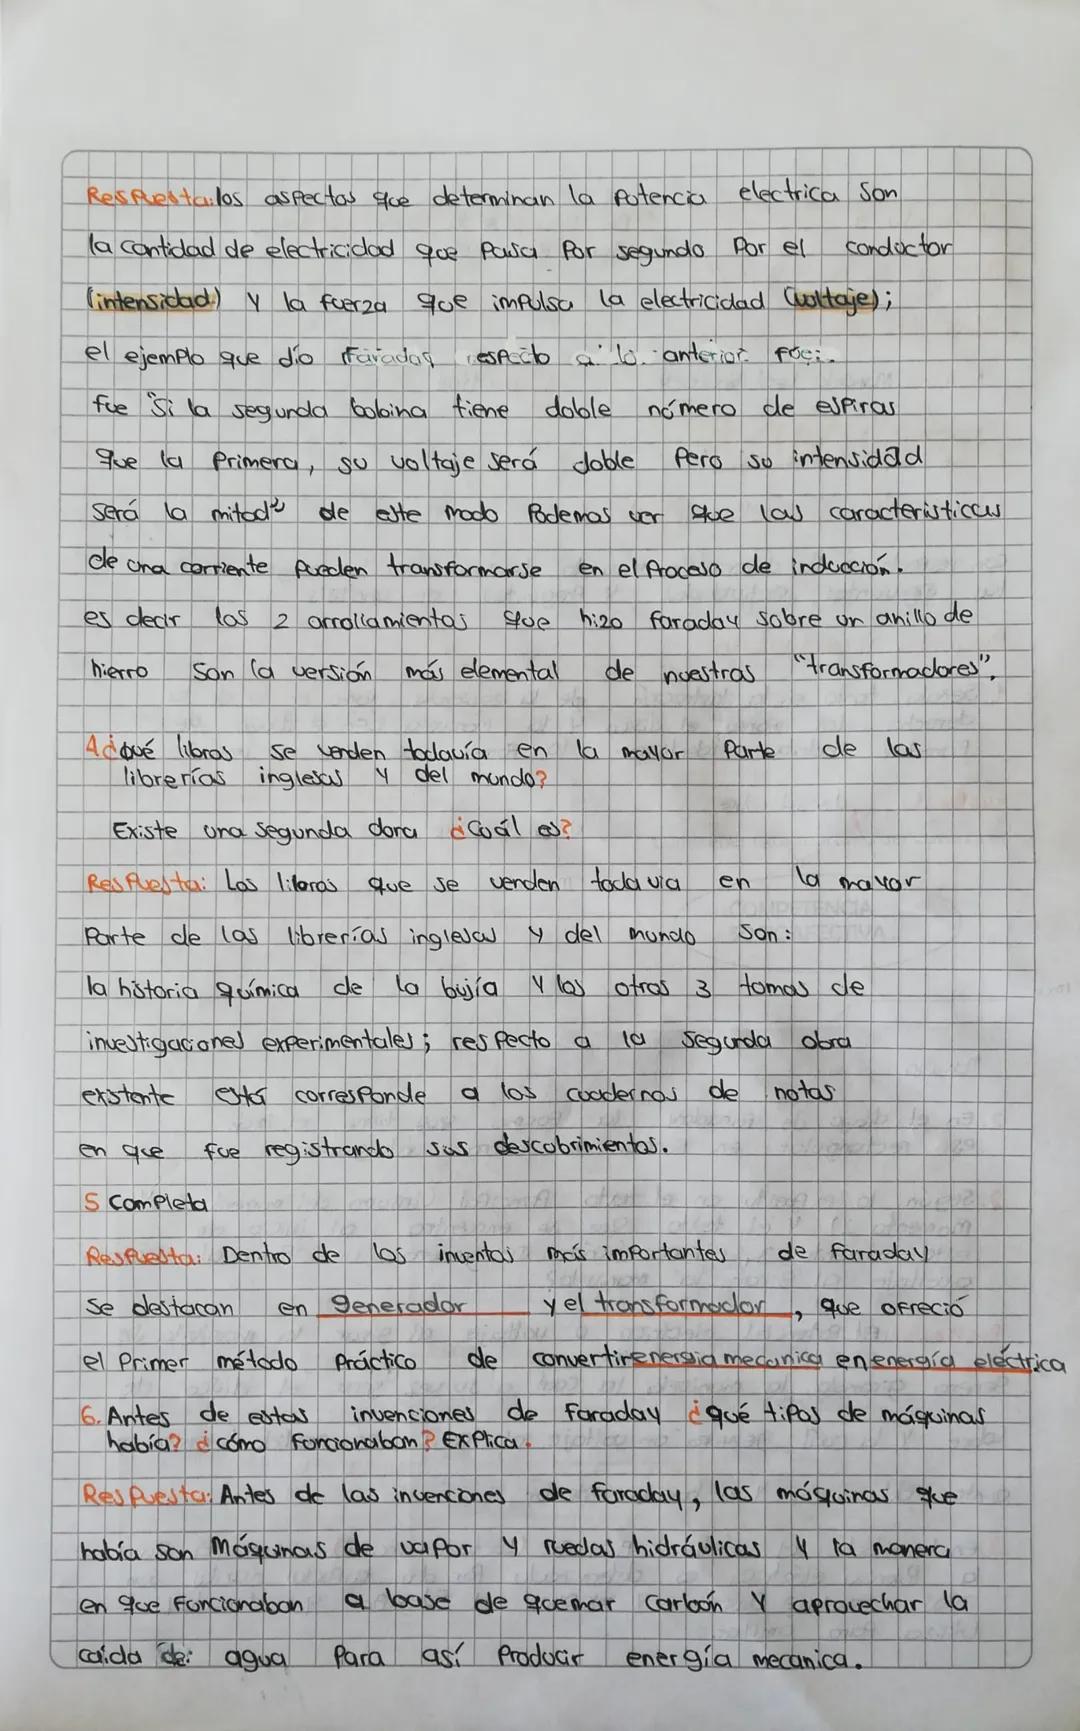 Respuesta: los aspectos que determinan la potencia electrica son
la cantidad de electricidad que pasa por segundo por el conductor
(intensidad) y la fuerza que impulsa la electricidad (voltaje);
el ejemplo que dio Faraday respecto a lo anterior
fue "si la segunda bobina tiene doble número de espiras
que la primera, su voltaje será doble pero su intensidad
será la mitad" de este modo podemos ver que las caracteristicas
de una corriente pueden transformarse en el proceso de inducción.
es decir los 2 arrollamientos que hizo faraday sobre un anillo de
hierro son la versión más elemental de nuestros "transformadores".
4 ¿qué libros se venden todavía en la mayor parte de las
librerías inglesas y del mundo?
Existe una segunda dora ¿Cuál es?
Respuesta: Los libros que se venden todavia en la mayor
Parte de las librerías inglesas y del mundo son:
la historia química de la bujía y los otros 3 tomos de
investigaciones experimentales; respecto a la segunda obra
existente está corresponde a los cuadernos de notas
en que fue registrando sus descubrimientos.
5 Completa
Respuesta: Dentro de los inventos más importantes de faraday
se destacan en generador y el transformador, que ofreció
el primer método práctico de convertir energia mecanica en energía eléctrica
6. Antes de estas invenciones de faraday ¿qué tipos de máquinas
había? ¿cómo funcionaban? Explica.
Respuesta: Antes de las invenciones de faraday, las máquinas que
había son máquinas de vapor y ruedas hidráulicas y la manera
en que funcionaban a base de quemar carbón y aprovechar la
caída de agua para así producir energía mecanica.